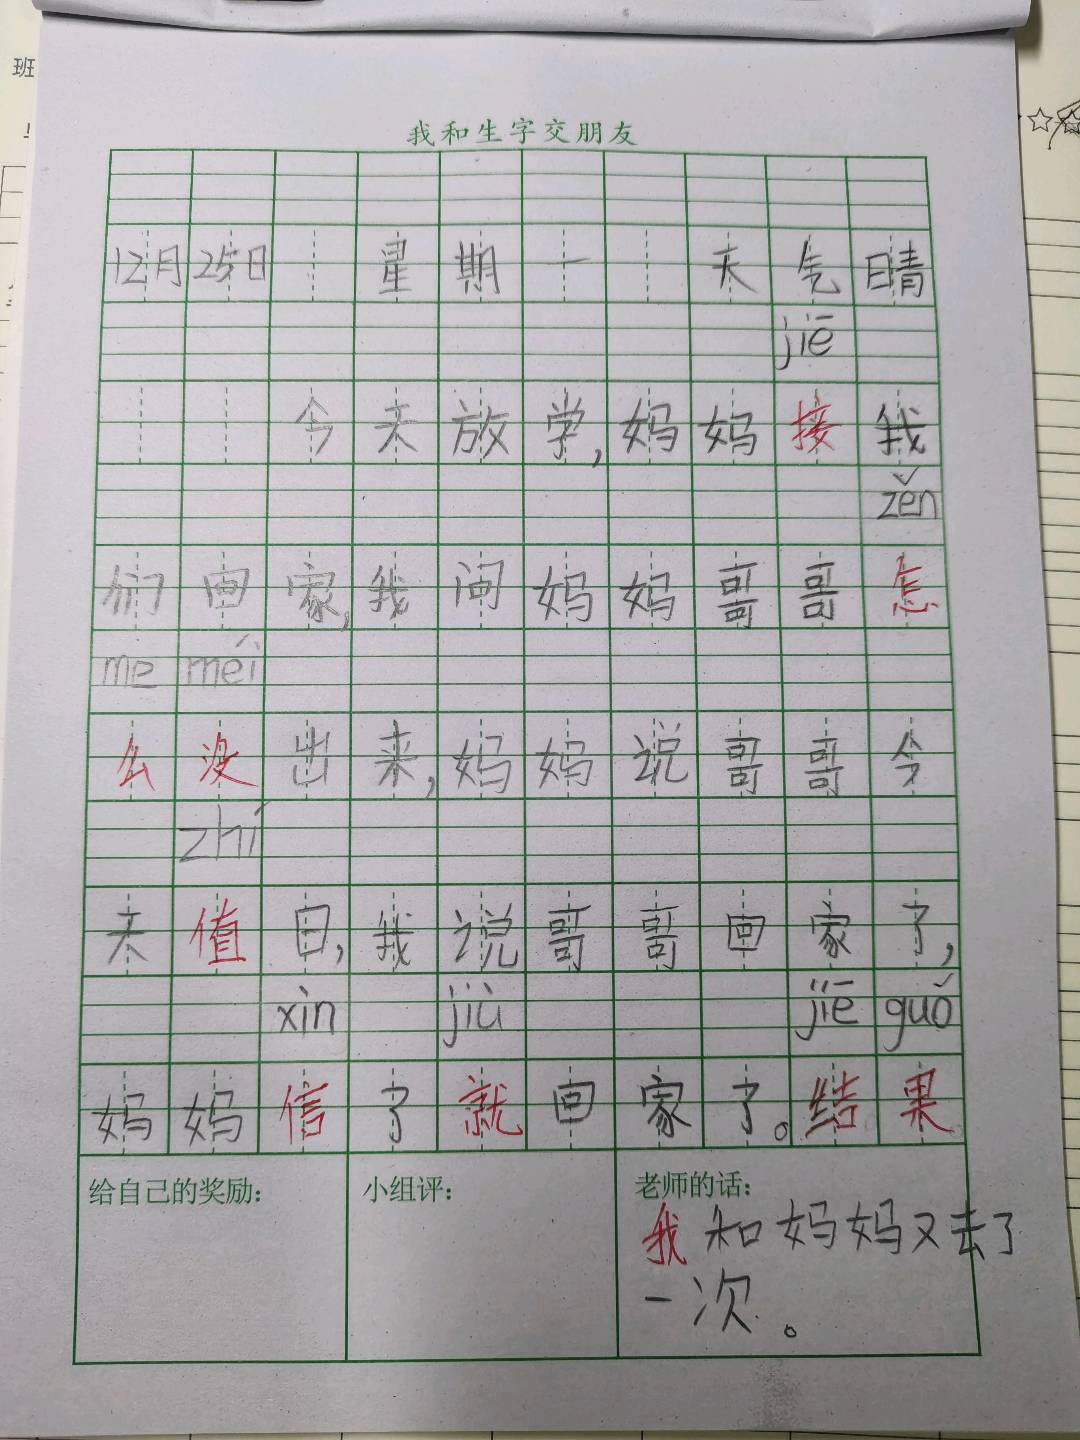 班
我和生字交朋友
12月25日 星期一 天气晴
jiē
今天放学,妈妈接我
zěn
们回家,我问妈妈哥哥怎
me méi
么没出来,妈妈说哥哥今
zhí
天值日,我说哥哥回家了,
xìn jiù jiē guǒ
妈妈信了就回家了。结果
给自己的奖励: 小组评: 老师的话:
我和妈妈又去了
一次。